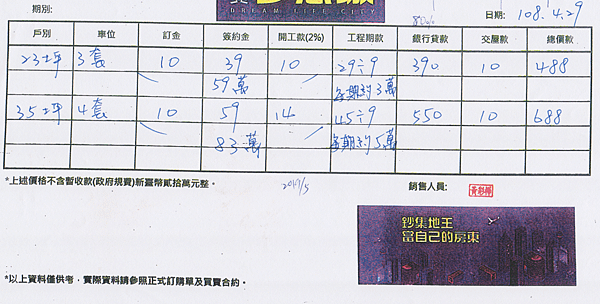 期別:
DREAM LIFE CITY
80%
日期: 108.4.29
戶別 車位 訂金 簽約金 開工款(2%) 工程期款 銀行貸款 交屋款 總價款
23坪 3套 10 39 10 29÷9 390 10 488
59萬 每期約3萬
35坪 4套 10 59 14 45÷9 550 10 688
83萬 每期約5萬
*上述價格不含暫收款(政府規費)新臺幣貳拾萬元整。
銷售人員:
鈔集地王
當自己的房東
*以上資料僅供考，實際資料請參照正式訂購單及買賣合約。